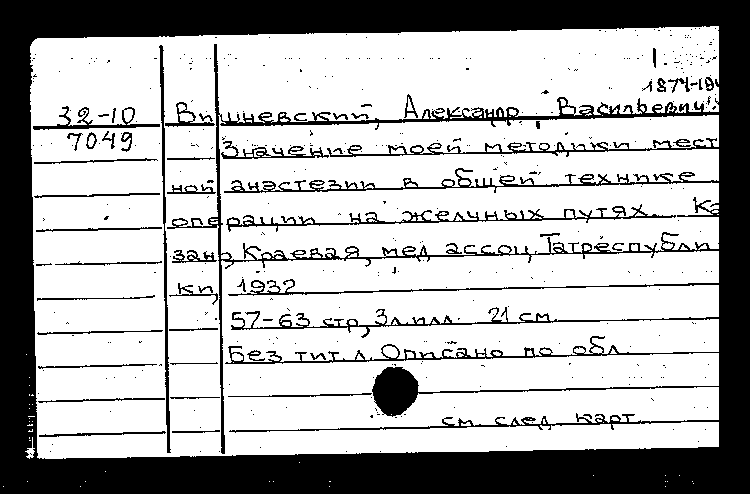 1.
1874-19
32-10 Вишневский, Александр Васильевич.
7049
Значение моей методики мест
ной анэстезии в общей технике
операции на желчных путях. Ка
зань, Краевая мед ассоц. Татреспубли
ки, 1932
57-63 стр, 3 л. илл. 21 см.
Без тит. л. Описано по обл.
см. след. карт.